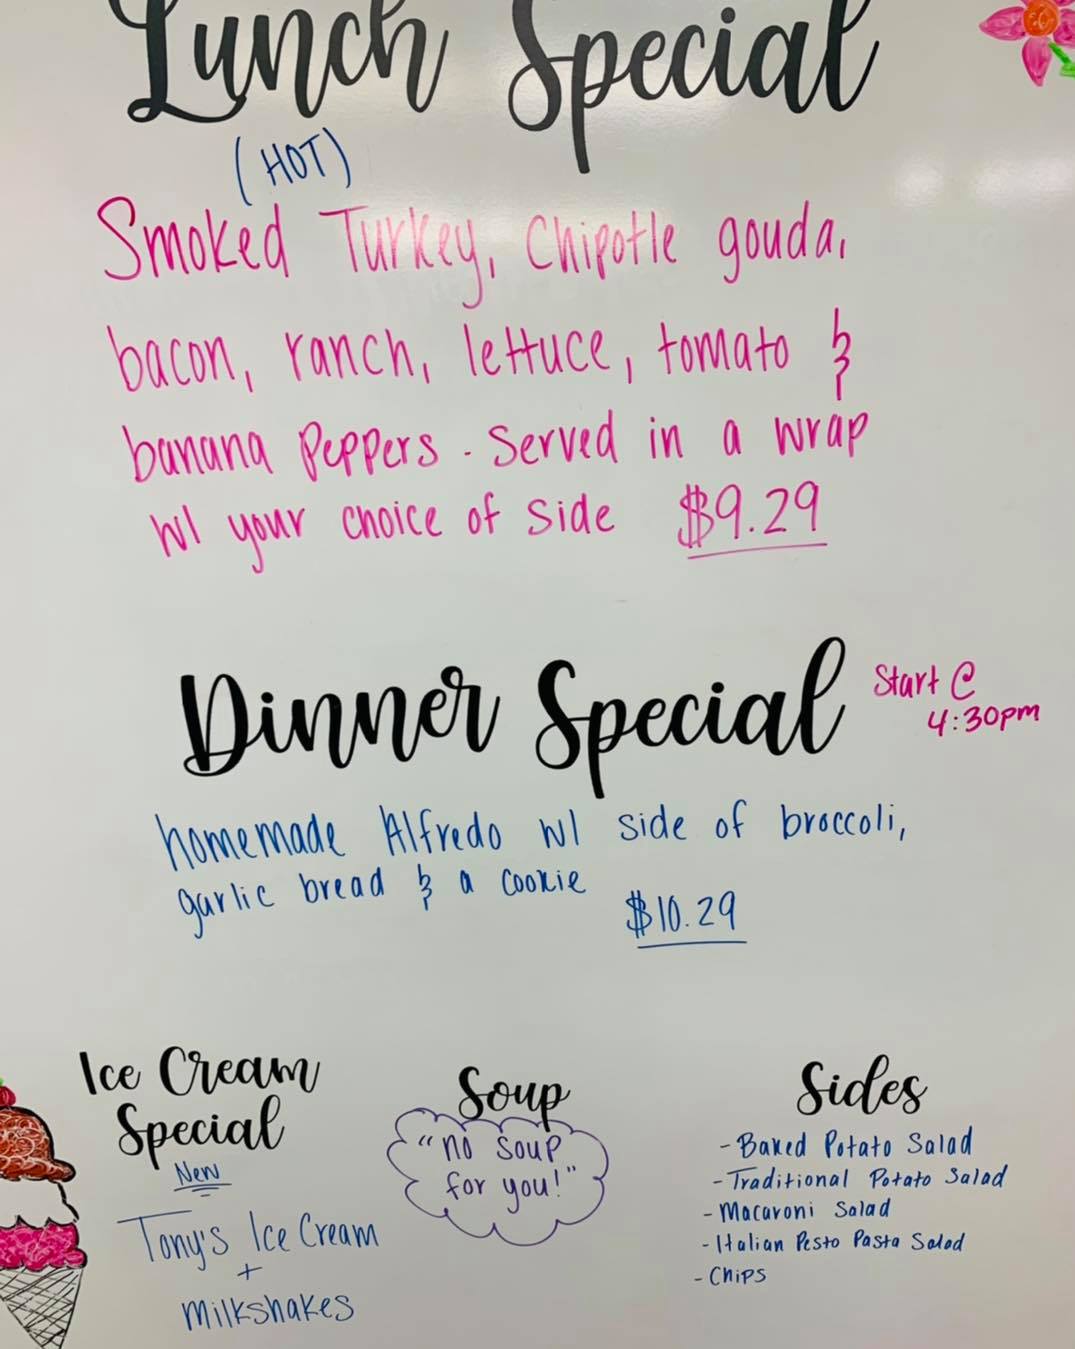 Lunch Special
(HOT)
Smoked Turkey, Chipotle gouda,
bacon, ranch, lettuce, tomato &
banana Peppers. Served in a wrap
w/ your choice of side $9.29
Dinner Special
Start @
4:30pm
homemade Alfredo w/ side of broccoli,
garlic bread & a cookie
$10.29
Ice Cream
Special
New
Tony's Ice Cream
+
Milkshakes
Soup
"no soup
for you!"
Sides
- Baked Potato Salad
- Traditional Potato Salad
- Macaroni Salad
- Italian Pesto Pasta Salad
- Chips